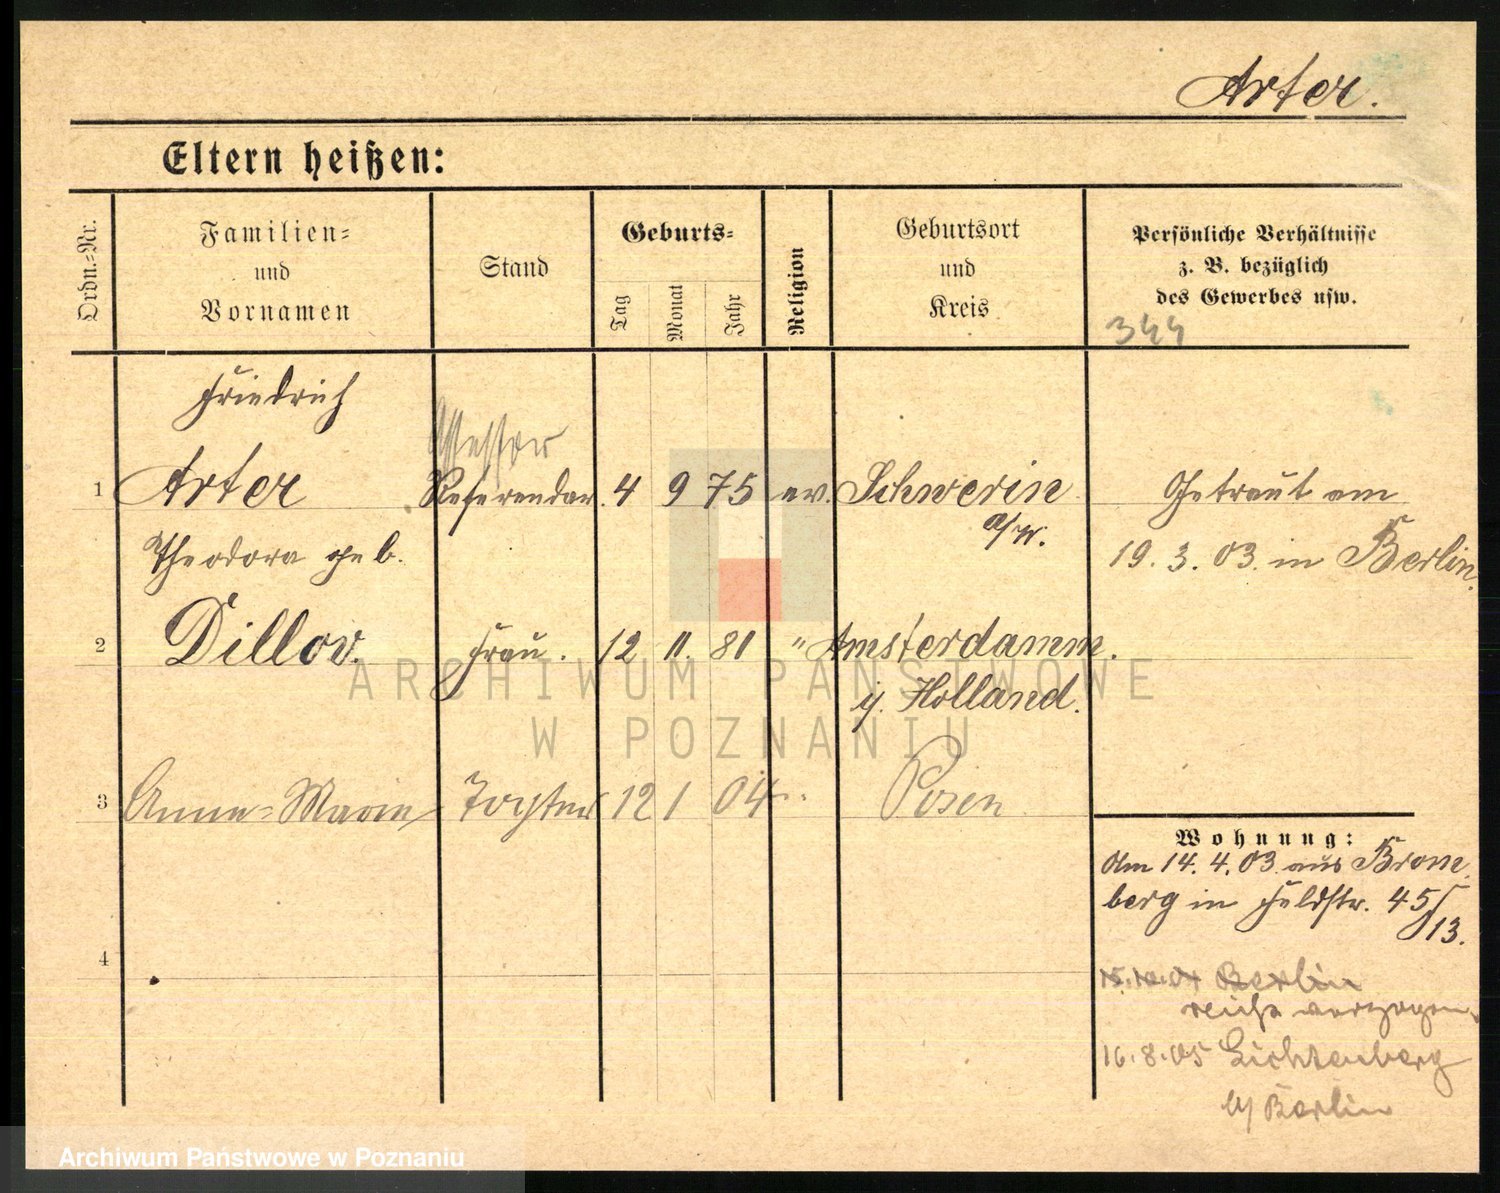 Arter.
Eltern heißen:
Ordn.=Nr.
Familien=
und
Vornamen
Stand
Geburts=
Tag
Monat
Jahr
Religion
Geburtsort
und
Kreis
Persönliche Verhältnisse
z. B. bezüglich
des Gewerbes usw.
344
Friedrich
Assessor
1 Arter Referendar. 4 9 75 ev. Schwerin
a/W.
Getraut am
19. 3. 03. in Berlin.
Theodora geb.
2 Dillov. Frau. 12 11. 81 " Amsterdamm.
i/ Holland.
3 Anna=Marie Tochter 12 1 04 Posen
Wohnung:
Am 14. 4. 03. aus Brom
berg in Feldstr. 45/
13.
4
Berlin
verzogen.
16.8.05 Lichtenberg
b/ Berlin
ARCHIWUM PAŃSTWOWE
W POZNANIU
Archiwum Państwowe w Poznaniu